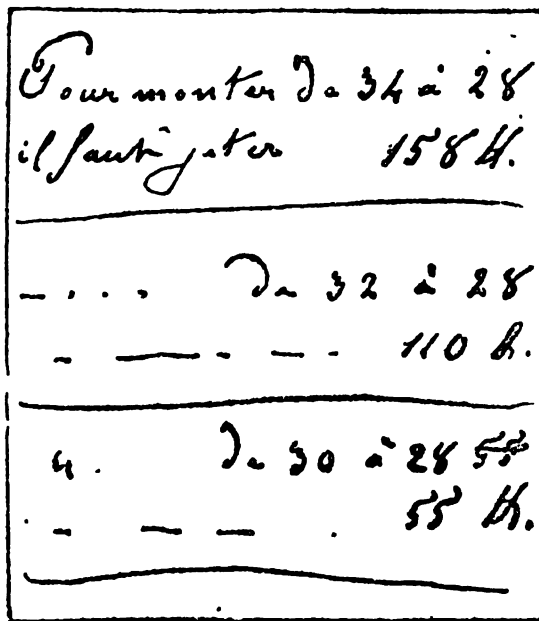 Pour monter de 34 à 28
il faut jeter 158 k.
- . . . de 32 à 28
- — - — - 110 k.
de 30 à 28 55
- — — . 55 k.